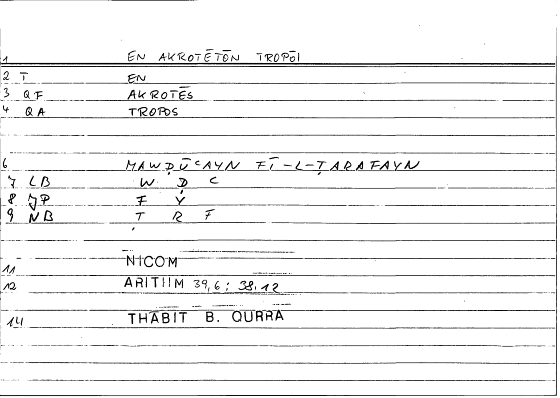 1 EN AKROTĒTŌN TROPŌI
2 T EN
3 QF AKROTĒS
4 QA TROPOS
6 MAWḌŪCAYN FĪ-L-ṬARAFAYN
7 LB W Ḍ C
8 JP F Y
9 NB Ṭ R F
11 NICOM
12 ARITIIM 39,6; 38,12
14 THĀBIT B. QURRA